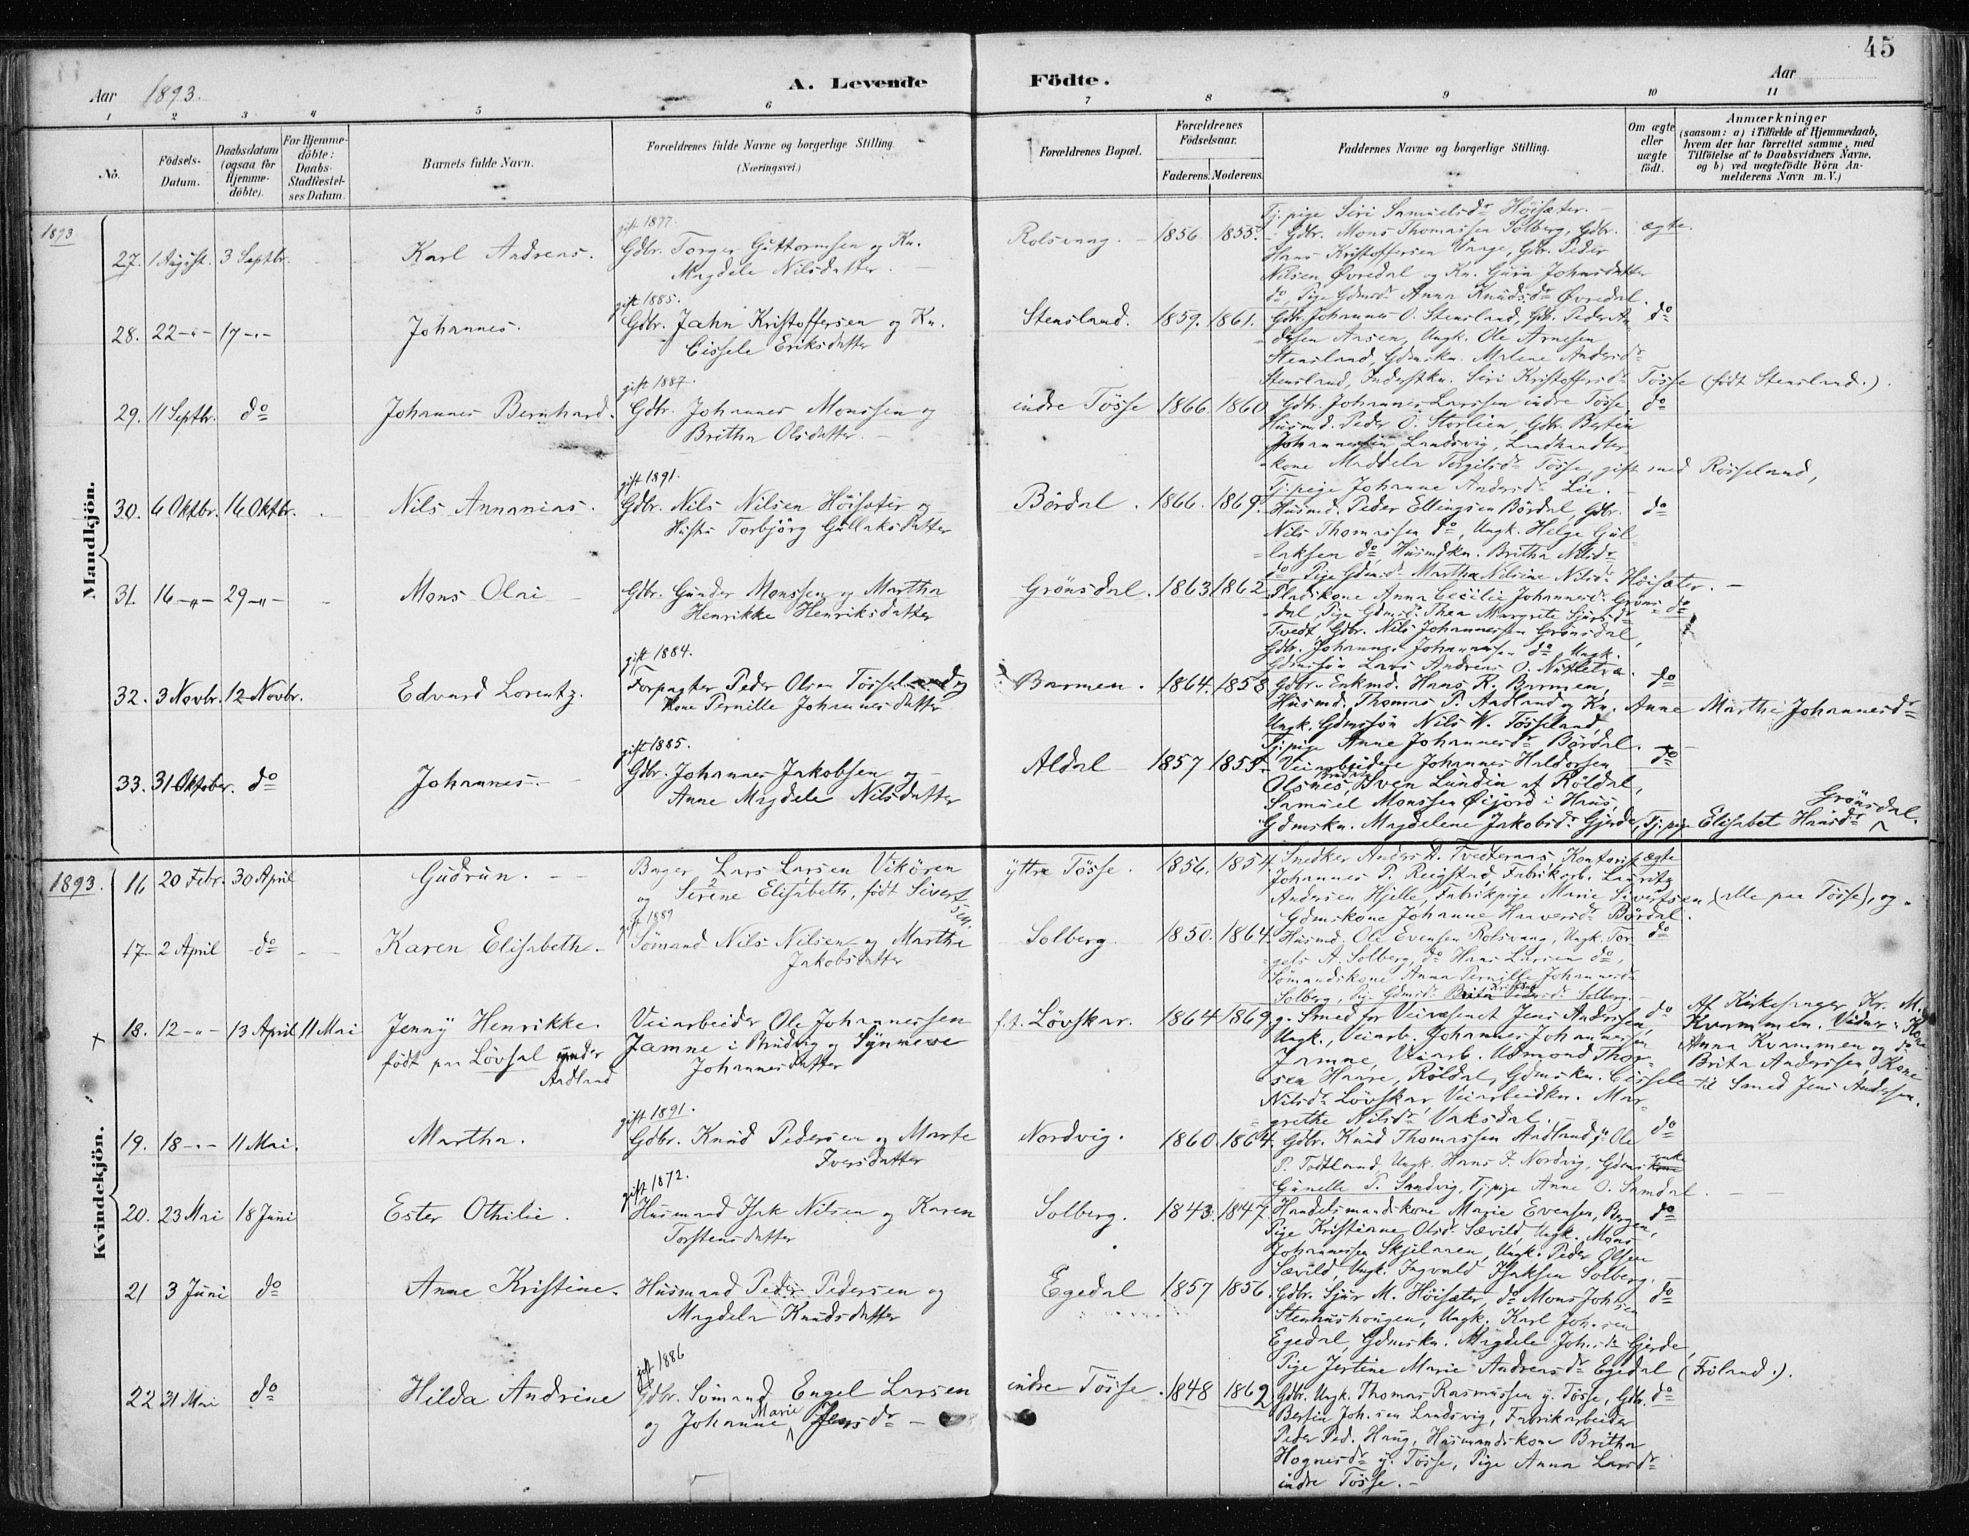 45
Aar 1893.
A. Levende Födte.
Aar
1 2 3 4 5 6 7 8 9 10 11
No.
Födsels-Datum.
Daabsdatum (ogsaa for Hjemmedöbte).
For Hjemmedöbte: Daabs-Stadfæstelses Datum.
Barnets fulde Navn.
Forældrenes fulde Navne og borgerlige Stilling (Næringsvei.)
Forældrenes Bopæl.
Forældrenes Födselsaar.
Faderens. Moderens.
Faddernes Navne og borgerlige Stilling.
Om ægte eller uægte födt.
Anmærkninger (saasom: a) i Tilfælde af Hjemmedaab, hvem der har forrettet samme, med Tilföielse af to Daabsvidners Navne, og b) ved uægtefödte Börn Anmelderens Navn m. V.)
Mandkjön.
1893
27. 1 August. 3 Septbr. Karl Andreas.
gift 1877.
Gdbr. Torger Guttormsen og Kn.
Magdele Nilsdatter.
Rolsvaag. 1856 1855.
Tj. pige Siri Samuelsdr Höisæter.
Gdbr. Mons Thomassen Solberg, Gdbr.
Hans Kristoffersen Vaage, Gdbr. Peder
Nilsen Øvredal og Kn. Gura Johnsdatter
do, Pige Gdmsd. Anna Knudsdr Øvredal.
ægte.
28. 22 -"- 17 -"- Johannes.
gift 1885.
Gdbr. Jahn Kristoffersen og Kn.
Cissele Eriksdatter
Stensland. 1859. 1861.
Gdbr. Johannes O. Stensland, Gdbr. Peder An-
dersen Aasen, Ungk. Ole Arnesen
Stensland, Gdmskn. Malene Andersdr
Stensland, Inderstkn. Siri Kristoffersdr Tösse (födt Stensland.).
do
29. 11 Septbr. do Johannes Bernhard.
gift 1887.
Gdbr. Johannes Monssen og
Britha Olsdatter.
indre Tösse 1866. 1860
Gdbr. Johannes Larssen indre Tösse,
Husmd. Peder O. Storlien, Gdbr. Bertin
Johannessen Landsvig, Landhandler-
kone Maddela Torgilsdr Tösse, gift med Röiseland,
Tj. pige Johanne Andersdr Lie.
do
30. 6 Oktbr. 16 Oktbr. Nils Annanias.
gift 1891.
Gdbr. Nils Nilsen Höisæter og
Hustru Torbjörg Gullaksdatter
Bördal. 1866. 1869.
Husmd. Peder Ellingsen Bördal, Gdbr.
Nils Thomassen do, Ungk. Helge Gul-
laksen do, Husmdkn. Britha Nilsdr
do, Pige Gdmsd. Martha Nilsine Nilsdr Höisæter.
do
31. 16 -"- 29 -"- Mons Olai
Gdbr. Gunder Monssen og Martha
Henrikke Henriksdatter
Grönsdal. 1863 1862
Pladskone Anna Cecilie Johannesdr Gröns-
dal, Pige Gdmsd. Thea Margrete Sjursdr
Tvedt, Gdbr. Nils Johannessen Grönsdal,
Gdbr. Johannes Johannesen do, Ungk.
Gdmssön Lars Andreas O.
do
32. 3 Novbr. 12 Novbr. Edvard Lorentz.
gift 1884.
Forpagter Peder Olsen Tösseland og
Kone Pernille Johannesdatter
Barmen. 1864. 1858
Gdbr. Enkmd. Hans R. Barmen,
Husmd. Thomas P. Aadland og Kn. Anne Martha Johannesdr
Ungk. Gdmssön Nils W. Tösseland,
Tj. pige Anne Johannesdr Bördal.
do
33. 31 Oktober. do Johannes.
gift 1885.
Gdbr. Johannes Jakobsen og
Anne Magdele Nilsdatter
Aldal 1857 1855.
Veiarbeidere Johannes Haldorsen
Olsnes, Sven Lundin af Röldal,
Samuel Monssen Øijord i Haus,
Gdmskn. Magdelene Jakobsdr Gjerde, Tj. pige Elisabet Hansdr Grönsdal.
do
Kvindekjön.
1893.
16 20 Febr. 30 April Gudrun.
Bager Lars Larsen Vikören
og Serene Elisabeth, födt Sivertsen.
yttre Tösse. 1856. 1854.
Snedker Anders A. Tvedternæs, Kontorist
Johannes P. Reigstad, Fabrikarb. Lauritz
Andersen Hjelle, Fabrikpige Marie Sivertsen (alle paa Tösse), og
Gdmskone Johanne Haaversdr Bördal.
ægte
17 2 April do Karen Elisabeth.
gift 1889
Sömand Nils Nilsen og Martha
Jakobsdatter
Solberg. 1850. 1864.
Husmd. Ole Evensen Rolsvaag, Ungk. Tor-
gels A. Solberg, do Hans Larsen do,
Sömandskone Anna Pernille Johannesdr
Solberg, Pige Gdmsd. Solberg.
do
18. 12 -"- 13 April 11 Mai Jenny Henrikke.
födt paa Lövsal under Aadland
Veiarbeider Ole Johannessen
Jamne i Brudvig og Synneve
Johannesdatter
f. t. Lövskar. 1864 1869
g. Smed for Veivæsenet Jens Anderssen,
Ungk., Veiarb. Johannes Johannesen
Jamne, Veiarb. Admond Thor-
sen Haare, Röldal, Gdmskn. Cissele
Nilsdr Lövskar Veiarbeidkn. Mar-
grethe Nilsdr Vaksdal.
do
Af Kirkesanger Kr. M.
Kvammen. Vidner: Kone
Anna Kvammen og do
Brita Anderssen, Kone
til Smed Jens Andersen.
19. 18 -"- 11 Mai. Martha.
gift 1891.
Gdbr. Knud Pedersen og Marte
Iversdatter
Nordvig. 1860. 1864.
Gdbr. Knud Thomassen Aadland, " Ole
P. Todtland, Ungk. Hans I. Nordvig, Gdmsenke
Gunelle P. Sandvig, Tj. pige Anne O. Samdal.
do
20. 23 Mai 18 Juni Ester Othilie.
gift 1872.
Husmand Isak Nilsen og Karen
Torstensdatter
Solberg. 1843. 1847.
Handelsmandskone Marie Evensen, Bergen,
Pige Kristianne Olsdr Sævild, Ungk. Mons
Johannessen Skjelaaen, Ungk. Peder Olsen
Sævild, Ungk. Ingvald Isaksen Solberg.
do
21 3 Juni do Anne Kristine.
Husmand Peder Pedersen og
Magdela Knudsdatter
Egedal 1857 1856.
Gdbr. Sjur M. Höisæter, do Mons Johsen
Stenhushougen, Ungk. Karl Joh.sen
Egedal, Gdmskn. Magdele Joh.sdr Gjerde,
Pige Jertine Marie Andreasdr Egedal (Fröland.).
do
22 31 Mai do Hilda Andrine
gift 1886
Gdbr. Sömand Engel Larsen
og Johanne Marie Jensdr
indre Tösse. 1848 1862
Gdbr. Ungk. Thomas Rasmussen y. Tösse, Gdbr.
Bertin Joh.sen Landsvig, Fabrikarbeider
Peder Ped. Haug, Husmandskone Britha
Hognesdr y. Tösse, Pige Anna Larsdr
indre Tösse.
do